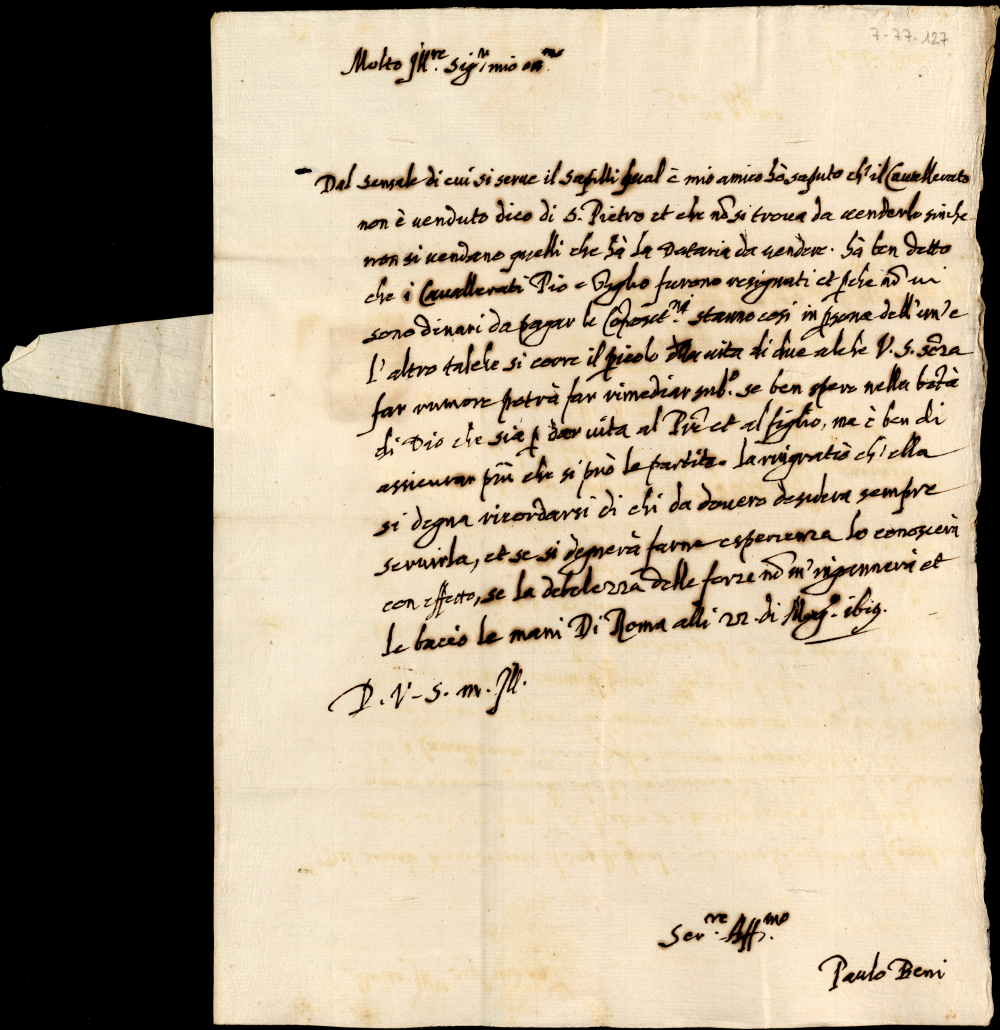 7-77-127
Molto Ill.re Sig.r mio oss.mo
Dal sensale di cui si serve il qual è mio amico hò saputo ch' il Cavallerato
non è venduto dico di S. Pietro et che nō si trova da venderlo sinche
non si vendano quelli che hà la Dataria da vendere. hà ben detto
che i Cavallerati Pio e Giglio furono resignati et ꝑche nō vi
sono dinari da pagar le stanno cosi in ꝑsona dell'un' e
l'altro talche si corre il ꝑicolo della vita di due alche V. S. senza
far rumore potrà far rimediar sub.o se ben spero nella bōtà
di Dio che sia ꝑ dar vita al Prē et al figlio, ma è ben di
assicurar più che si può le partite. la ringratio ch' ella
si degna ricordarsi di chi da dovero desidera sempre
servirla, et se si degnerà farne esperienza lo conoscerà
con effetto, se la debolezza delle forze nō m'ingannerà et
le bacio le mani Di Roma alli 22. di Mag.o 1619.
D. V. S. m. Ill.
Ser.re Aff.mo
Paulo Beni